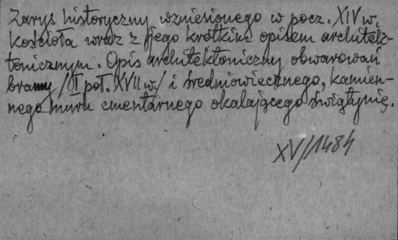 Zarys historyczny wzniesionego w pocz. XIV w.
kościoła wraz z jego krótkim opisem architek-
tonicznym. Opis architektoniczny obwarowań
bramy /II poł. XVII w/ i średniowiecznego, kamien-
nego muru cmentarnego okalającego świątynię.
XV/1484